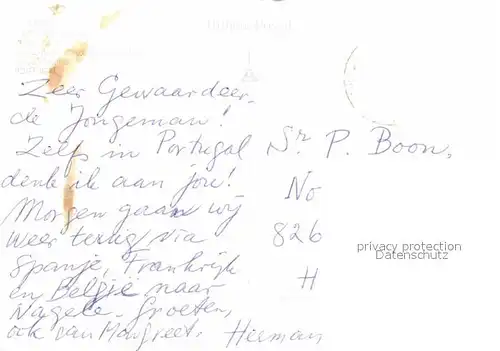 Zeer Gewaardeer-
de Jongeman!
Zelfs in Portugal
denk ik aan jou!
Morgen gaan wij
weer terug via
Spanje, Frankrijk
en België naar
Nagele. Groeten,
ook van Margreet. Herman
Sr. P. Boon.
No
826
H
privacy protection
Datenschutz